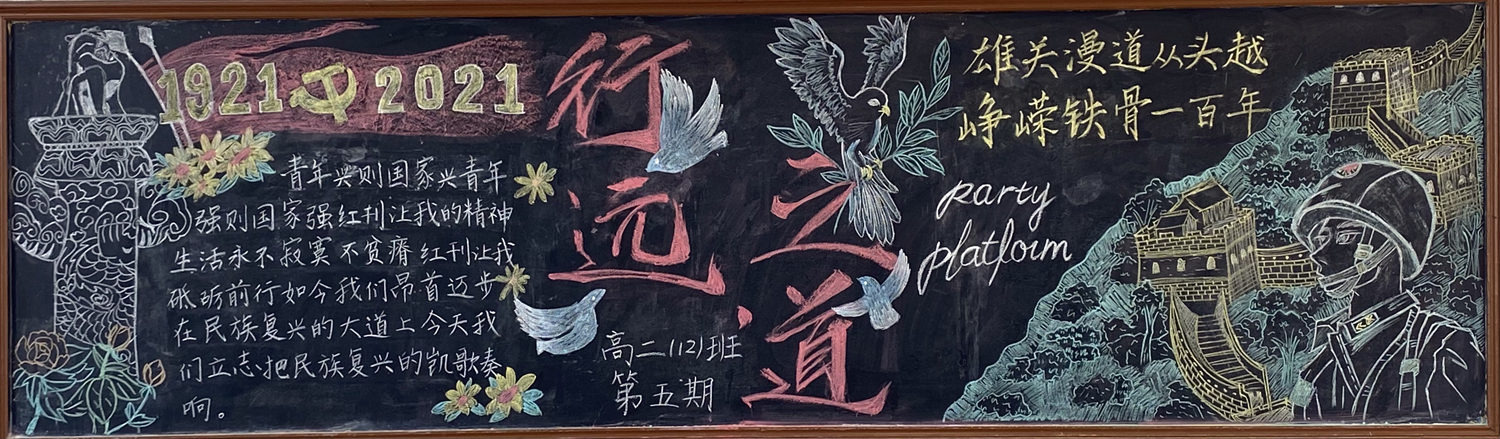 1921 2021
青年兴则国家兴青年
强则国家强红刊让我的精神
生活永不寂寞不贫瘠红刊让我
砥砺前行如今我们昂首迈步
在民族复兴的大道上今天我
们立志把民族复兴的凯歌奏
响。
行远之道
高二(12)班
第五期
雄关漫道从头越
峥嵘铁骨一百年
party
platform